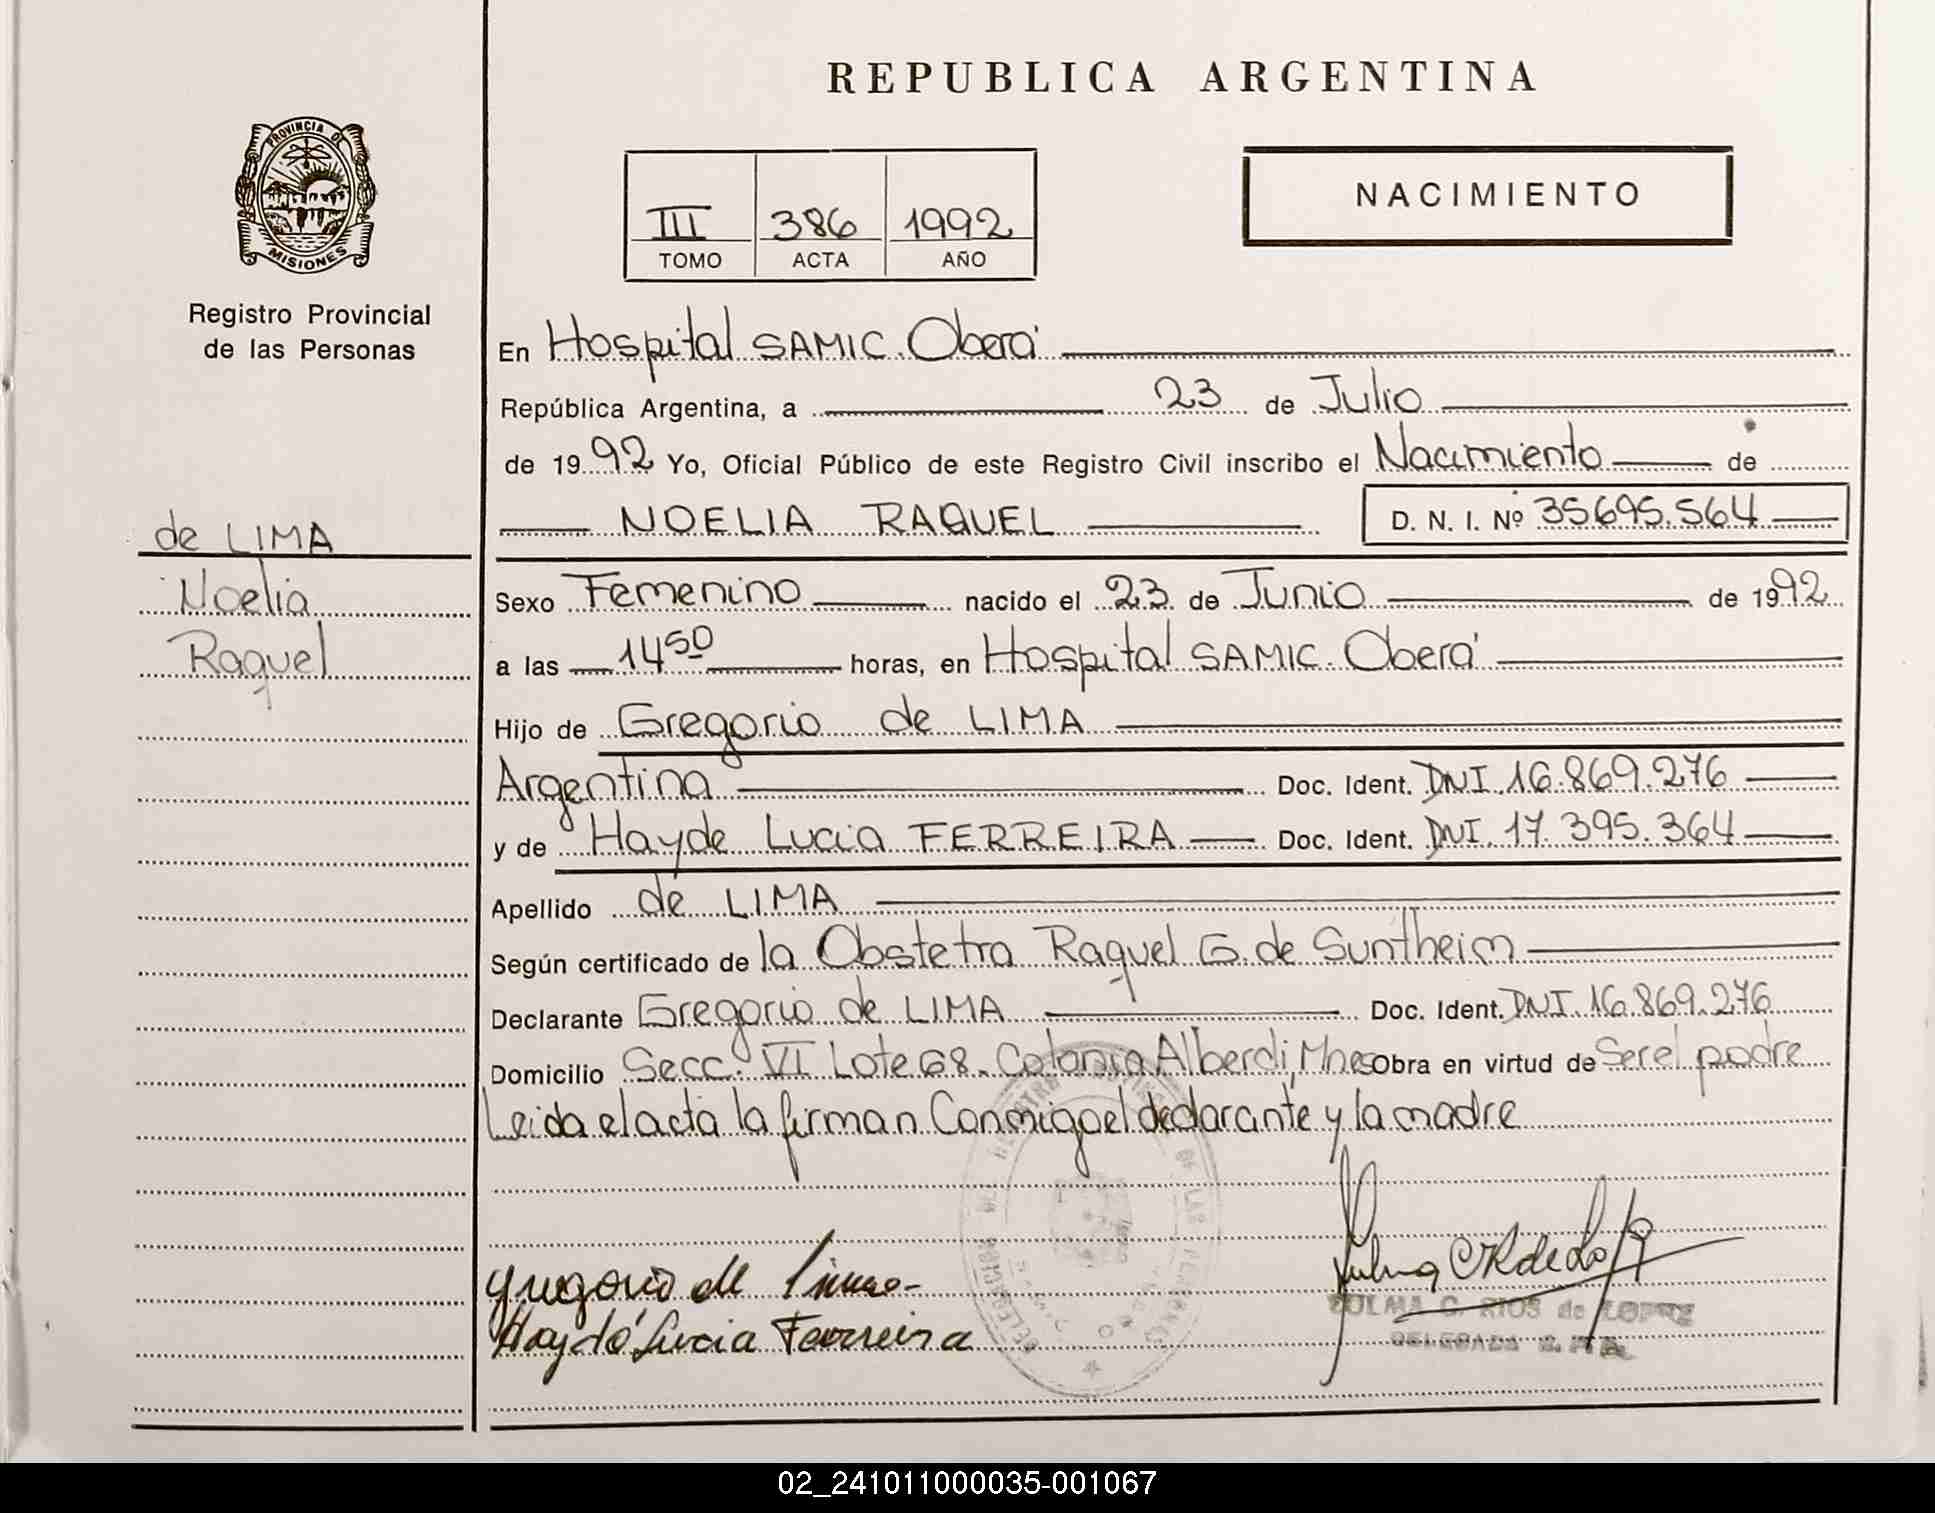 REPUBLICA ARGENTINA
PROVINCIA DE
MISIONES
Registro Provincial
de las Personas
III 386 1992
TOMO ACTA AÑO
NACIMIENTO
En Hospital SAMIC. Oberá
República Argentina, a 23 de Julio
de 1992 Yo, Oficial Público de este Registro Civil inscribo el Nacimiento de
NOELIA RAQUEL D. N. I. Nº 35.695.564
de LIMA
Noelia
Raquel
Sexo Femenino nacido el 23 de Junio de 1992
a las 14 50 horas, en Hospital SAMIC. Oberá
Hijo de Gregorio de LIMA
Argentina Doc. Ident. DNI. 16.869.276
y de Hayde Lucia FERREIRA Doc. Ident. DNI. 17.395.364
Apellido de LIMA
Según certificado de la Obstetra Raquel G. de Suntheim
Declarante Gregorio de LIMA Doc. Ident. DNI. 16.869.276
Domicilio Secc. VI Lote 68. Colonia Alberdi, Mnes Obra en virtud de Ser el padre
Leida el acta la firman Conmigo el declarante y la madre
Gregorio de Lima
Haydé Lucia Ferreira
ZULMA C. RIOS de LOPEZ
DELEGADA
02_241011000035-001067